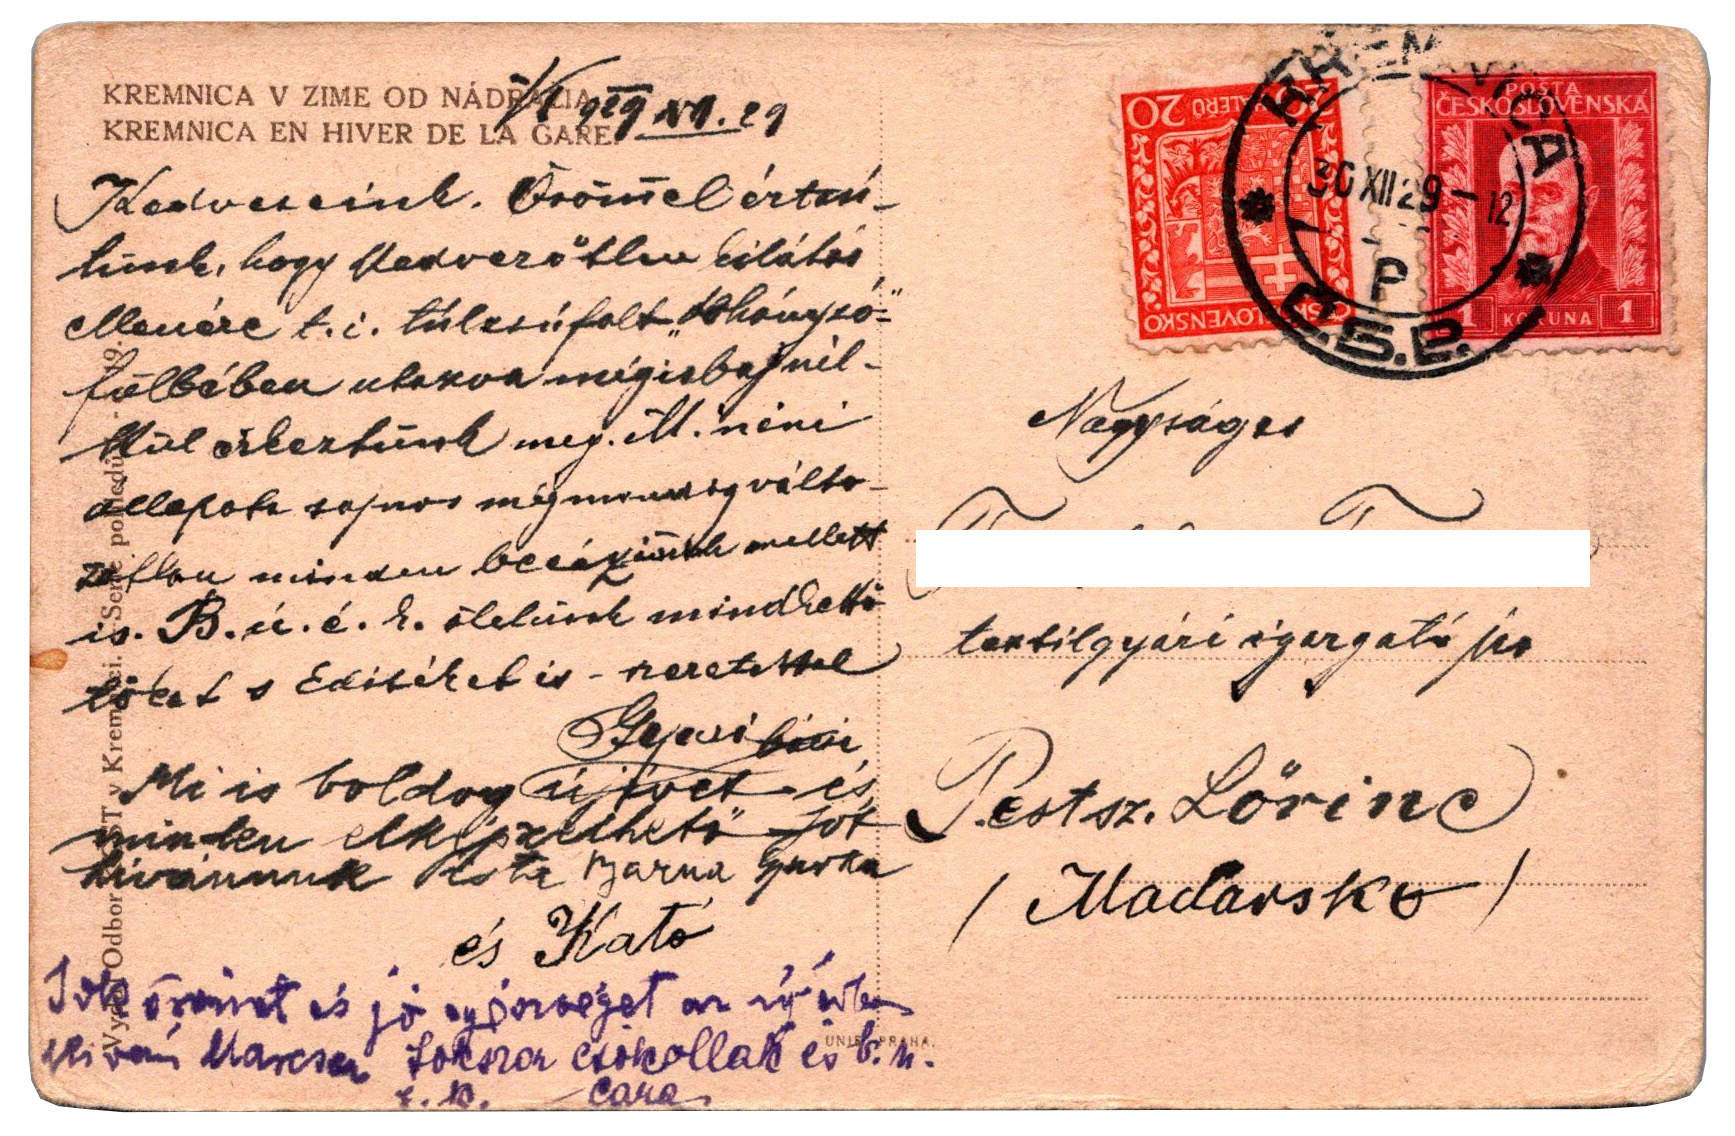 KREMNICA V ZIME OD NÁDRAŽIA
KREMNICA EN HIVER DE LA GARE.
929 XII. 29
Kedveseink. Örömmel értesü-
lünk, hogy kedvezőtlen kilátás
t. i. túlzsúfolt
fülkében utazva mégis baj nél-
kül érkeztünk meg. M. néni
állapota sajnos még mindég válto-
zatlan minden becézésünk mellett
is. B. ú. é. k. ölelünk mindkettő-
töket s Editéket is - szeretettel
Gyuri bácsi
Mi is boldog újévet és
minden elképzelhető jót
kívánunk Barna Gyurka
és Kató
Sok örömet és jó egészséget az új évben
kíván Marcsa sokszor csókollak és b. u.
é. k.
Vydal Odbor KST v Kremnici. Serie pohledů - 19.
UNIE PRAHA.
20
ČESKOSLOVENSKO
POŠTA
ČESKOSLOVENSKÁ
1 KORUNA 1
KREMNICA
30 XII 29 - 12
P
Č.S.P.
Nagyságos
textilgyári igazgató
Pestsz. Lőrinc
(Maďarsko)